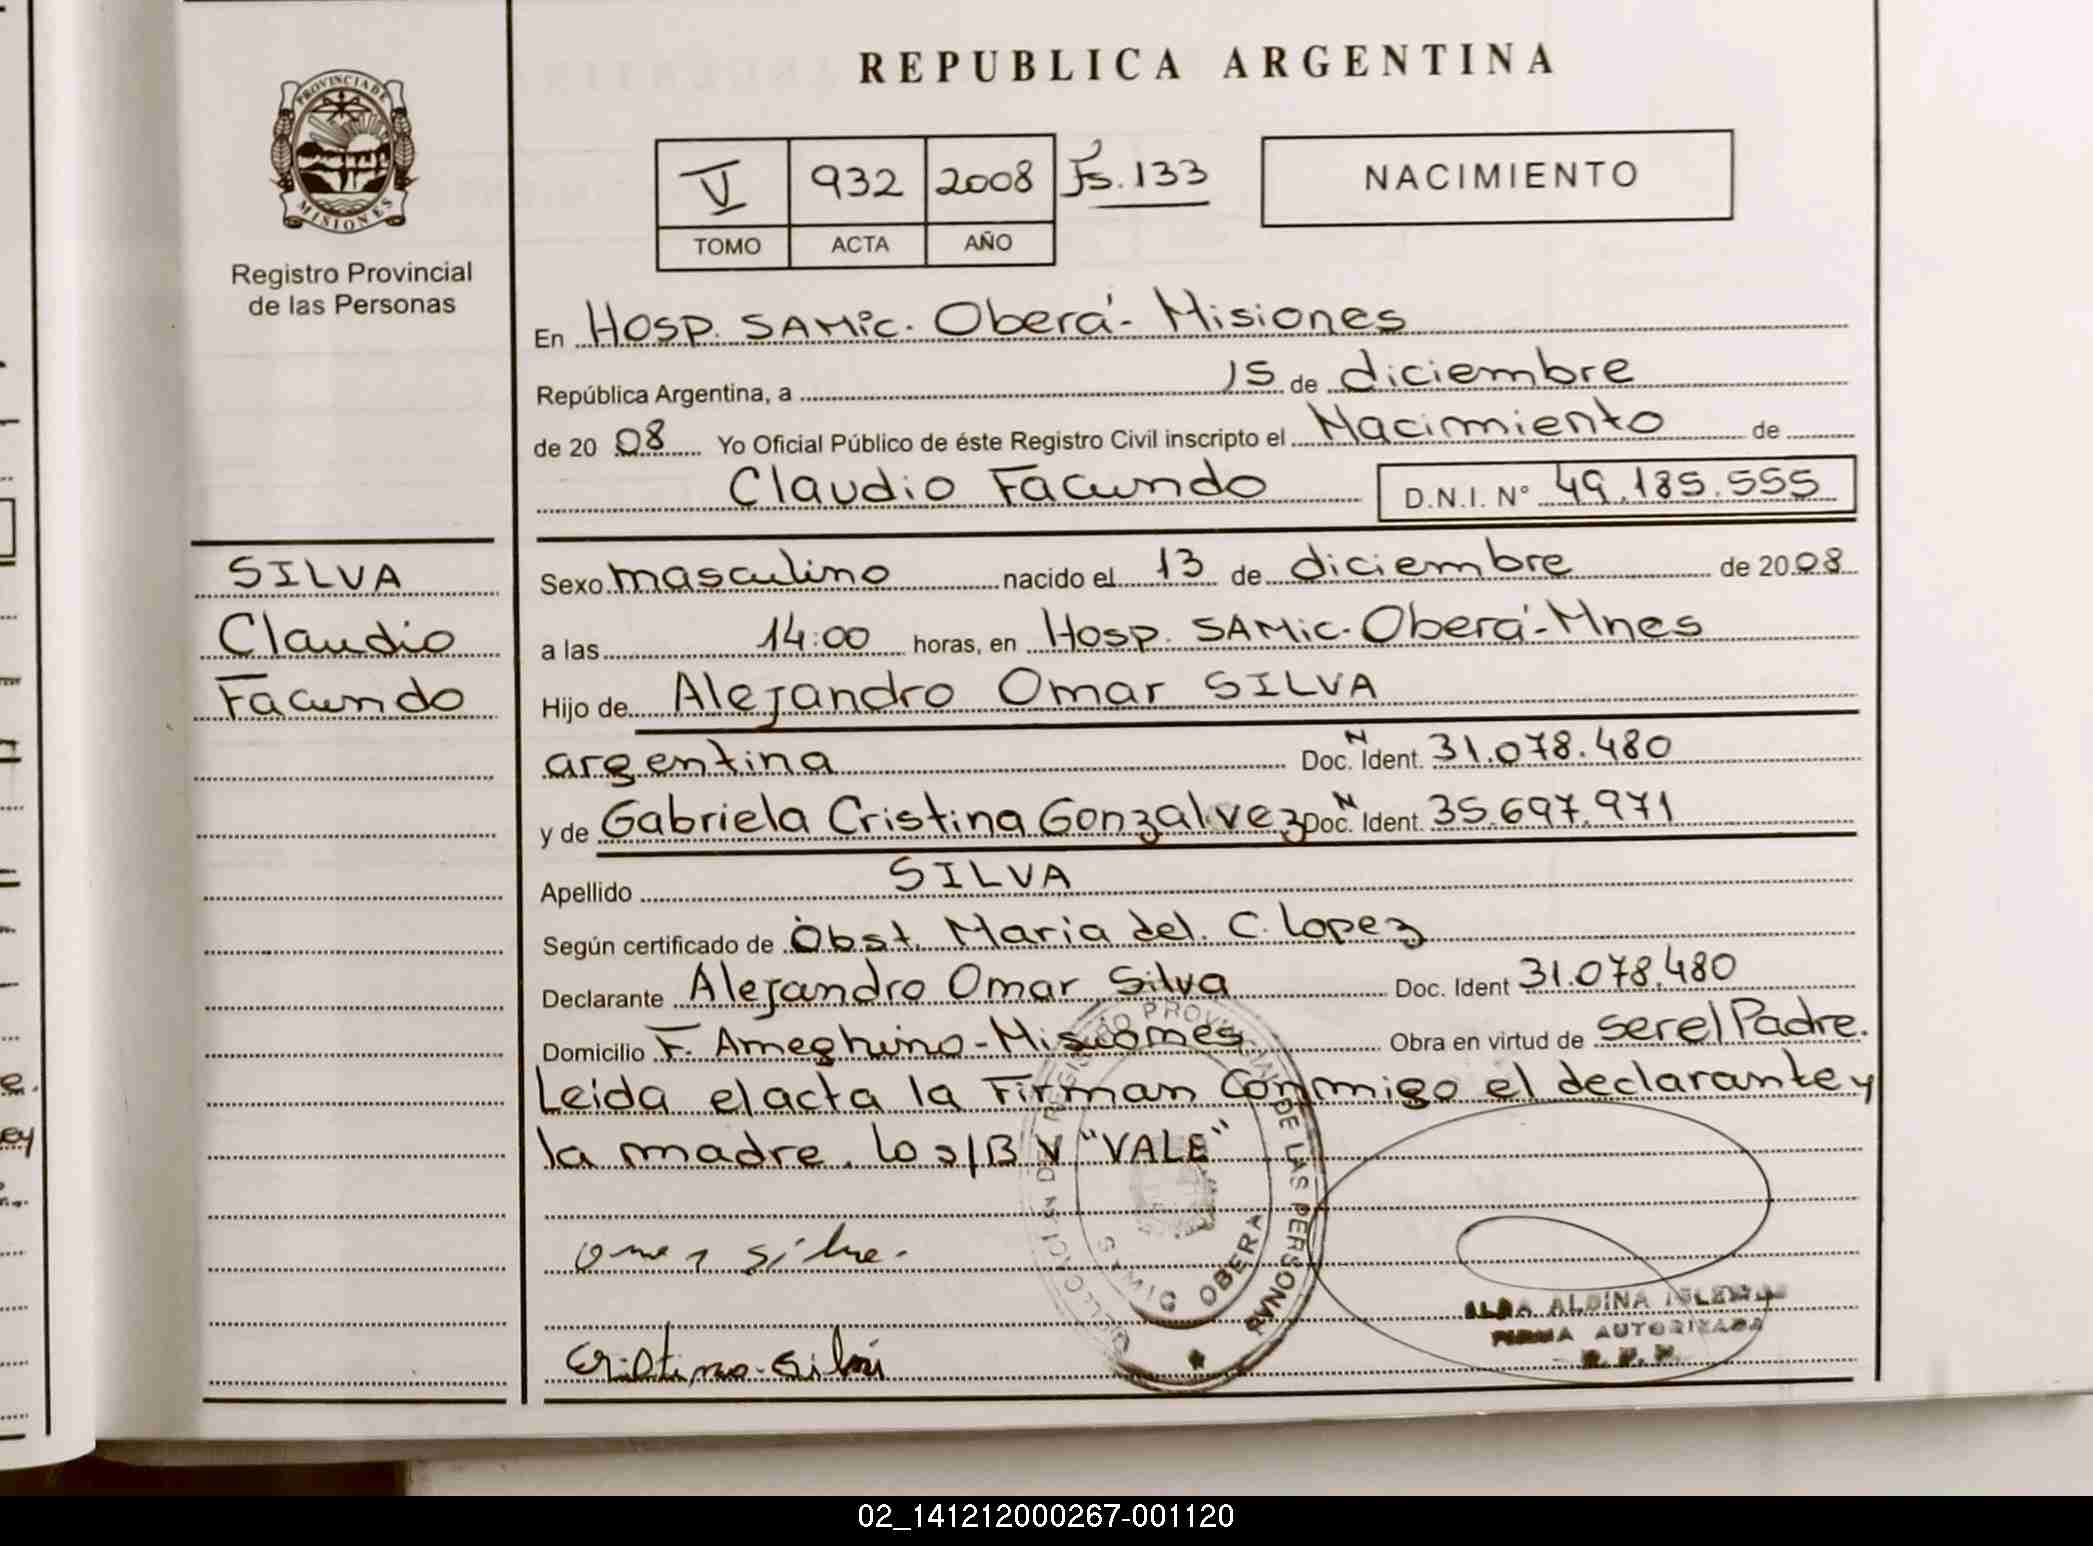 REPUBLICA ARGENTINA
PROVINCIA DE
MISIONES
Registro Provincial
de las Personas
V 932 2008 Fs. 133
TOMO ACTA AÑO
NACIMIENTO
En Hosp. SAMic. Oberá - Misiones
República Argentina, a 15 de diciembre
de 2008 Yo Oficial Público de éste Registro Civil inscripto el Nacimiento de
Claudio Facundo D.N.I. N° 49.185.555
SILVA
Claudio
Facundo
Sexo masculino nacido el 13 de diciembre de 2008
a las 14:00 horas, en Hosp. SAMic. Oberá - Mnes
Hijo de Alejandro Omar SILVA
argentina Doc. N Ident. 31.078.480
y de Gabriela Cristina Gonzalvez Doc. N Ident. 35.697.971
Apellido SILVA
Según certificado de Obst. Maria del. C. Lopez
Declarante Alejandro Omar Silva Doc. Ident 31.078.480
Domicilio F. Ameghino - Misiones Obra en virtud de ser el Padre.
Leida el acta la Firman Conmigo el declarante y
la madre. Lo s/B V "VALE"
Omar Silva.
Cristina Silva
REGISTRO PROVINCIAL DE LAS PERSONAS
SAMIC OBERA
ALBA ALBINA
FIRMA AUTORIZADA
R. P. P.
02_141212000267-001120